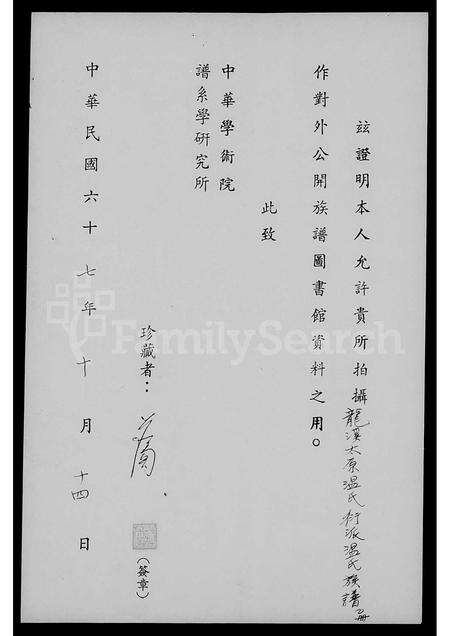 茲證明本人允許貴所拍攝龍溪太原溫氏衍派溫氏族譜
作對外公開族譜圖書館資料之用。
此致
中華學術院
譜系學研究所
珍藏者：
（簽章）
中華民國六十七年十月十四日
FamilySearch